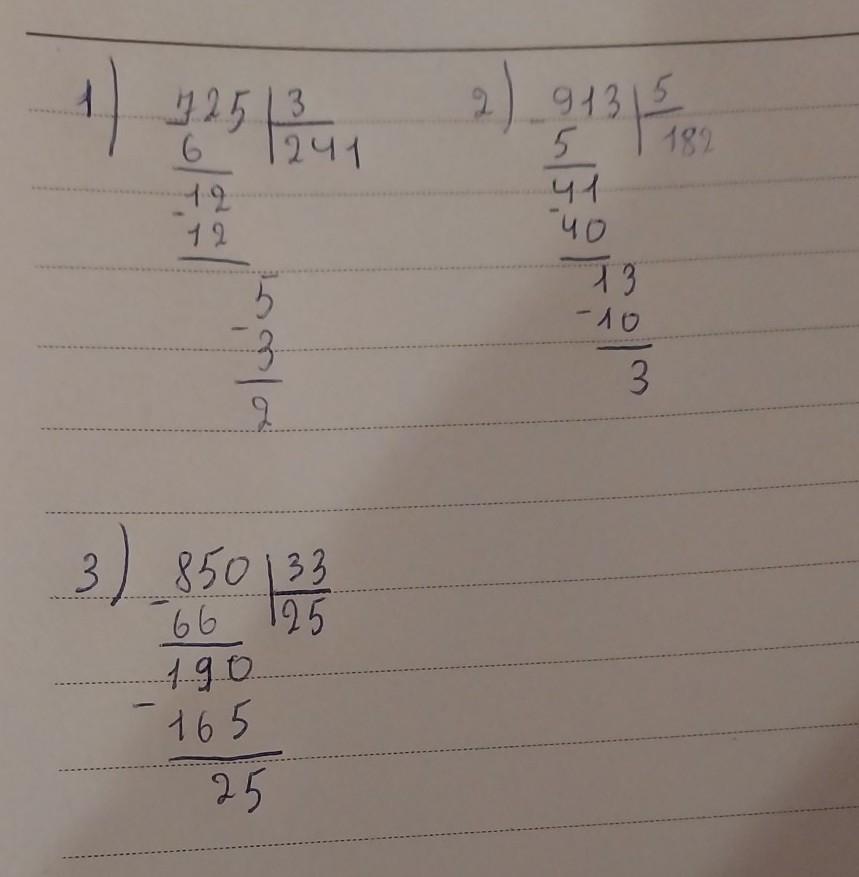 1) 725 | 3
- 6 | 241
12
- 12
5
- 3
2
2) 913 | 5
- 5 | 182
41
- 40
13
- 10
3
3) 850 | 33
- 66 | 25
190
- 165
25